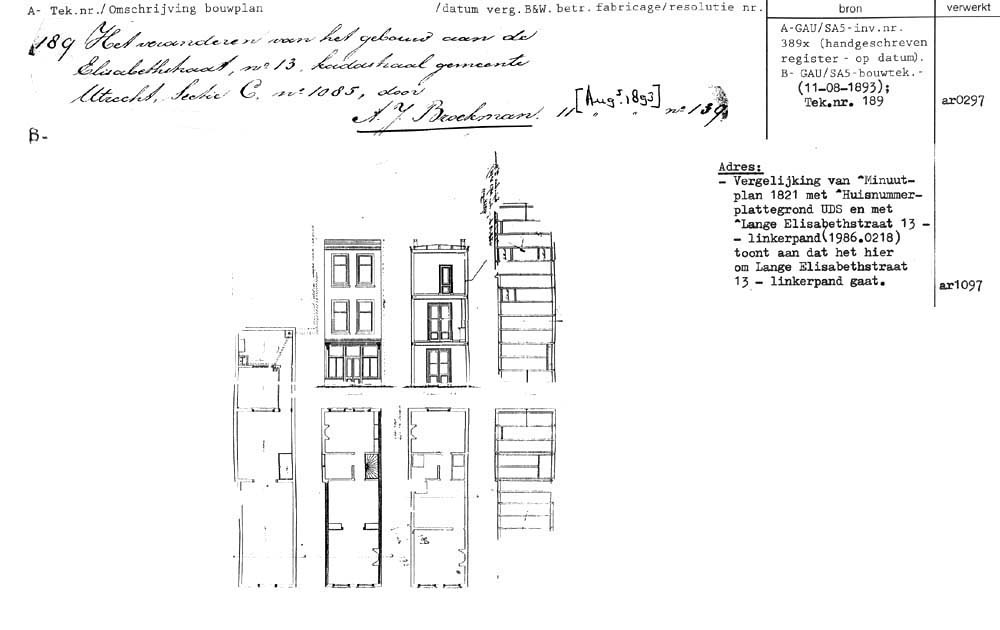 A- Tek.nr./Omschrijving bouwplan /datum verg.B&W.betr.fabricage/resolutie nr. bron verwerkt
189 Het veranderen van het gebouw aan de
Elisabethstraat, no 13, kadastraal gemeente
Utrecht, Sectie C. no 1085, door
A. J. Broekman. 11 [Augs. 1893] no 139
B-
A-GAU/SA5-inv.nr.
389x (handgeschreven
register - op datum).
B- GAU/SA5-bouwtek.-
(11-08-1893);
Tek.nr. 189
ar0297
Adres:
- Vergelijking van ^Minuut-
plan 1821 met ^Huisnummer-
plattegrond UDS en met
^Lange Elisabethstraat 13 -
- linkerpand(1986.0218)
toont aan dat het hier
om Lange Elisabethstraat
13 - linkerpand gaat.
ar1097